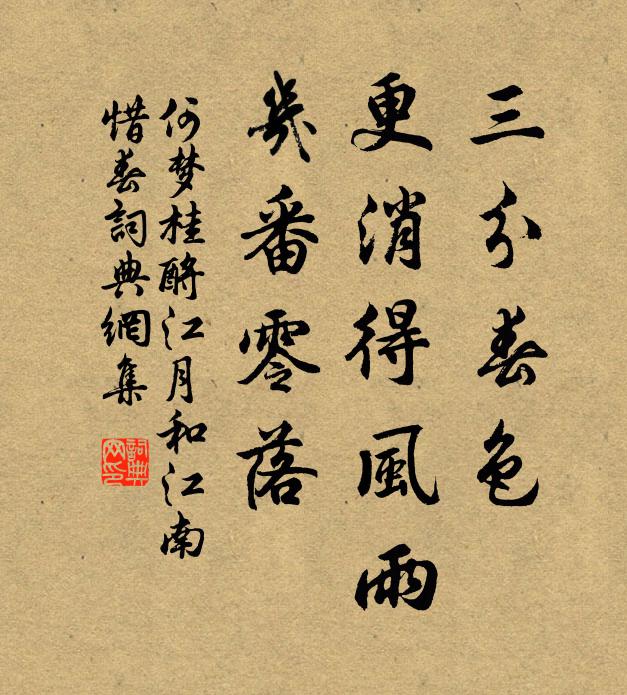 三分春色
更消得風雨
幾番零落
何夢桂酹江月和江南
惜春詞典網集
詞典网印